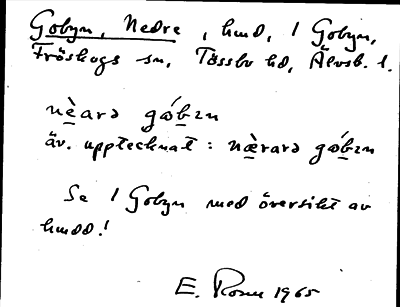 Gobyn, Nedre, hmd, 1 Gobyn,
Fröskogs sn, Tössbo hd, Älvsb. l.
nèarə góbən
äv. upptecknat: nærarə góbən
Se 1 Gobyn med översikt av
hmdd.!
E. Rosell 1965